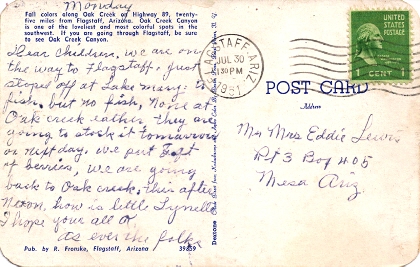 Monday
Fall colors along Oak Creek on Highway 89, twenty-
five miles from Flagstaff, Arizona. Oak Creek Canyon
is one of the loveliest and most colorful spots in the
southwest. If you are going through Flagstaff, be sure
to see Oak Creek Canyon.
Dear Children, we are on
the way to Flagstaff, just
stoped off at Lake mary: to
fish, but no fish, None at
Oak creek eather they are
going to stock it tomorrow
or next day. we put
of berries, we are going
back to Oak creek, this after
noon, how is little Lynelle
I hope your all O
as ever the folks
Pub. by R. Fronske, Flagstaff, Arizona 39859
FLAGSTAFF ARIZ.
JUL 30
1 30 PM
1951
UNITED STATES
POSTAGE
1 CENT 1
POST CARD
Address
Mr Mrs Eddie Lewis
Rt 3 Box 405
Mesa Ariz.